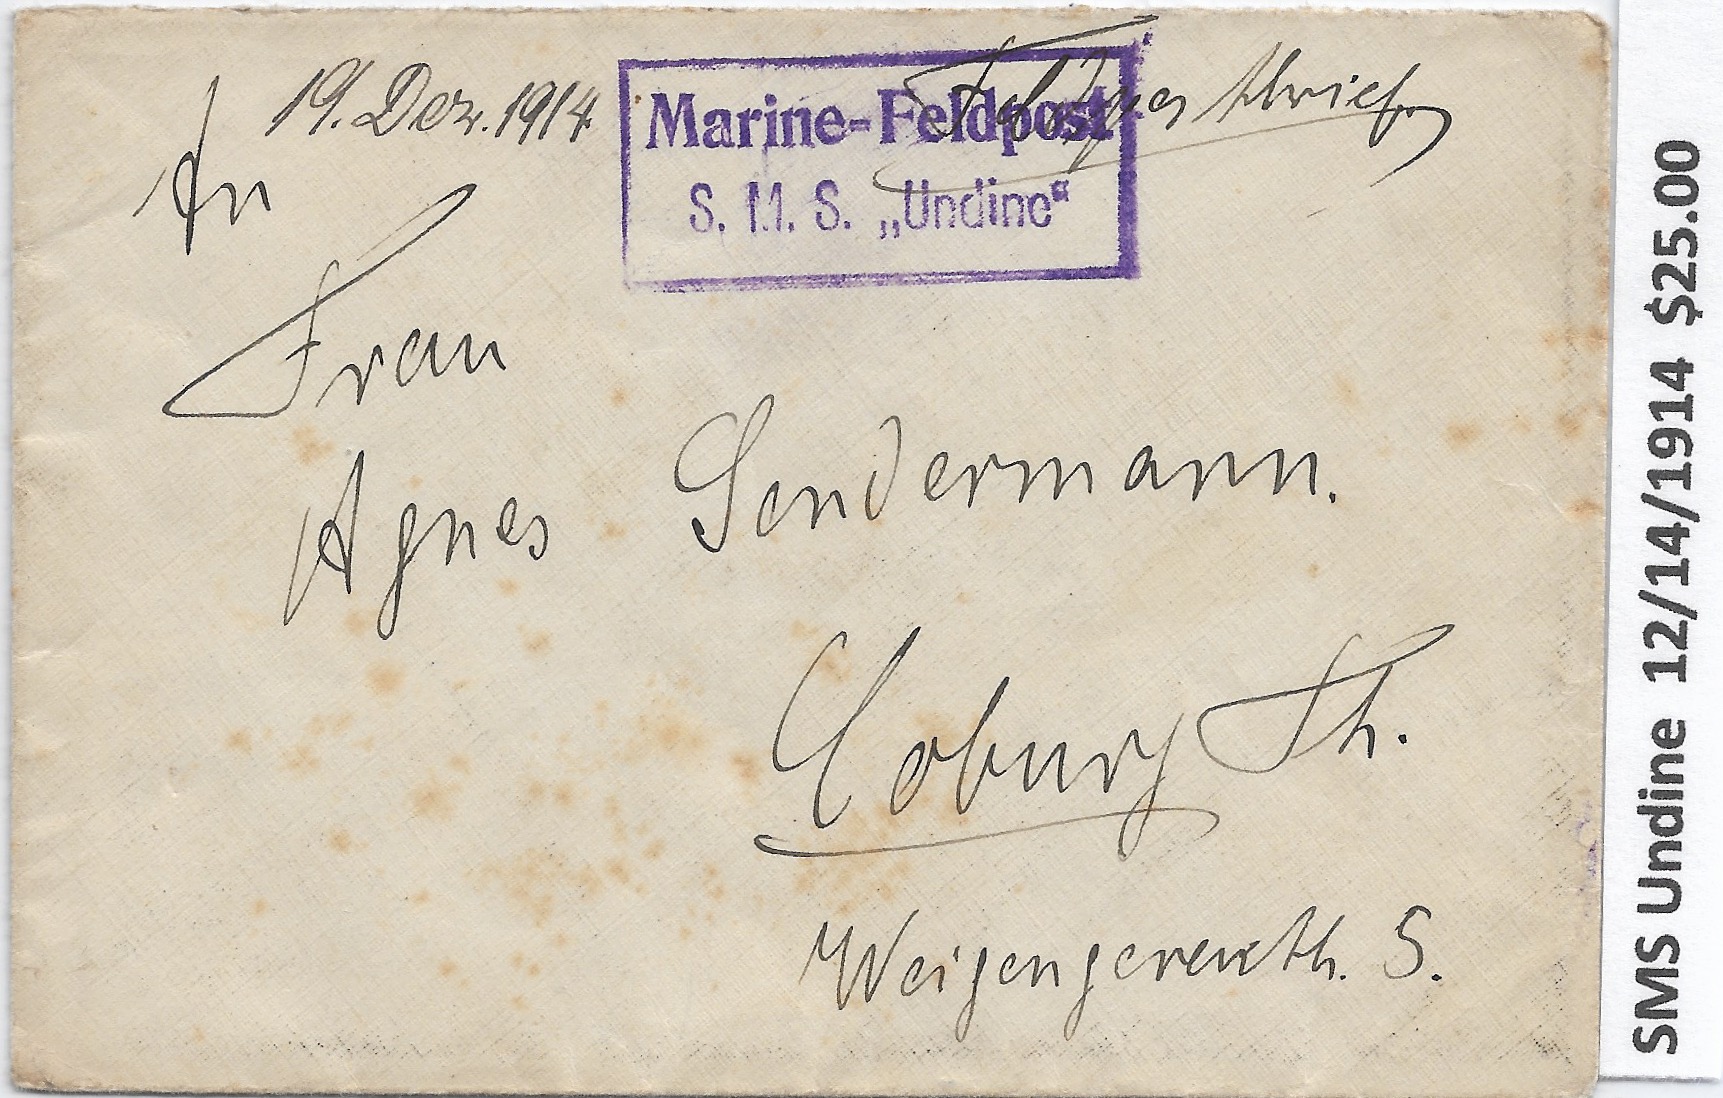 19. Dez. 1914
Marine-Feldpost
S. M. S. „Undine“
Feldpostbrief
An
Frau
Agnes Sendermann.
Coburg Th.
5.
SMS Undine 12/14/1914 $25.00